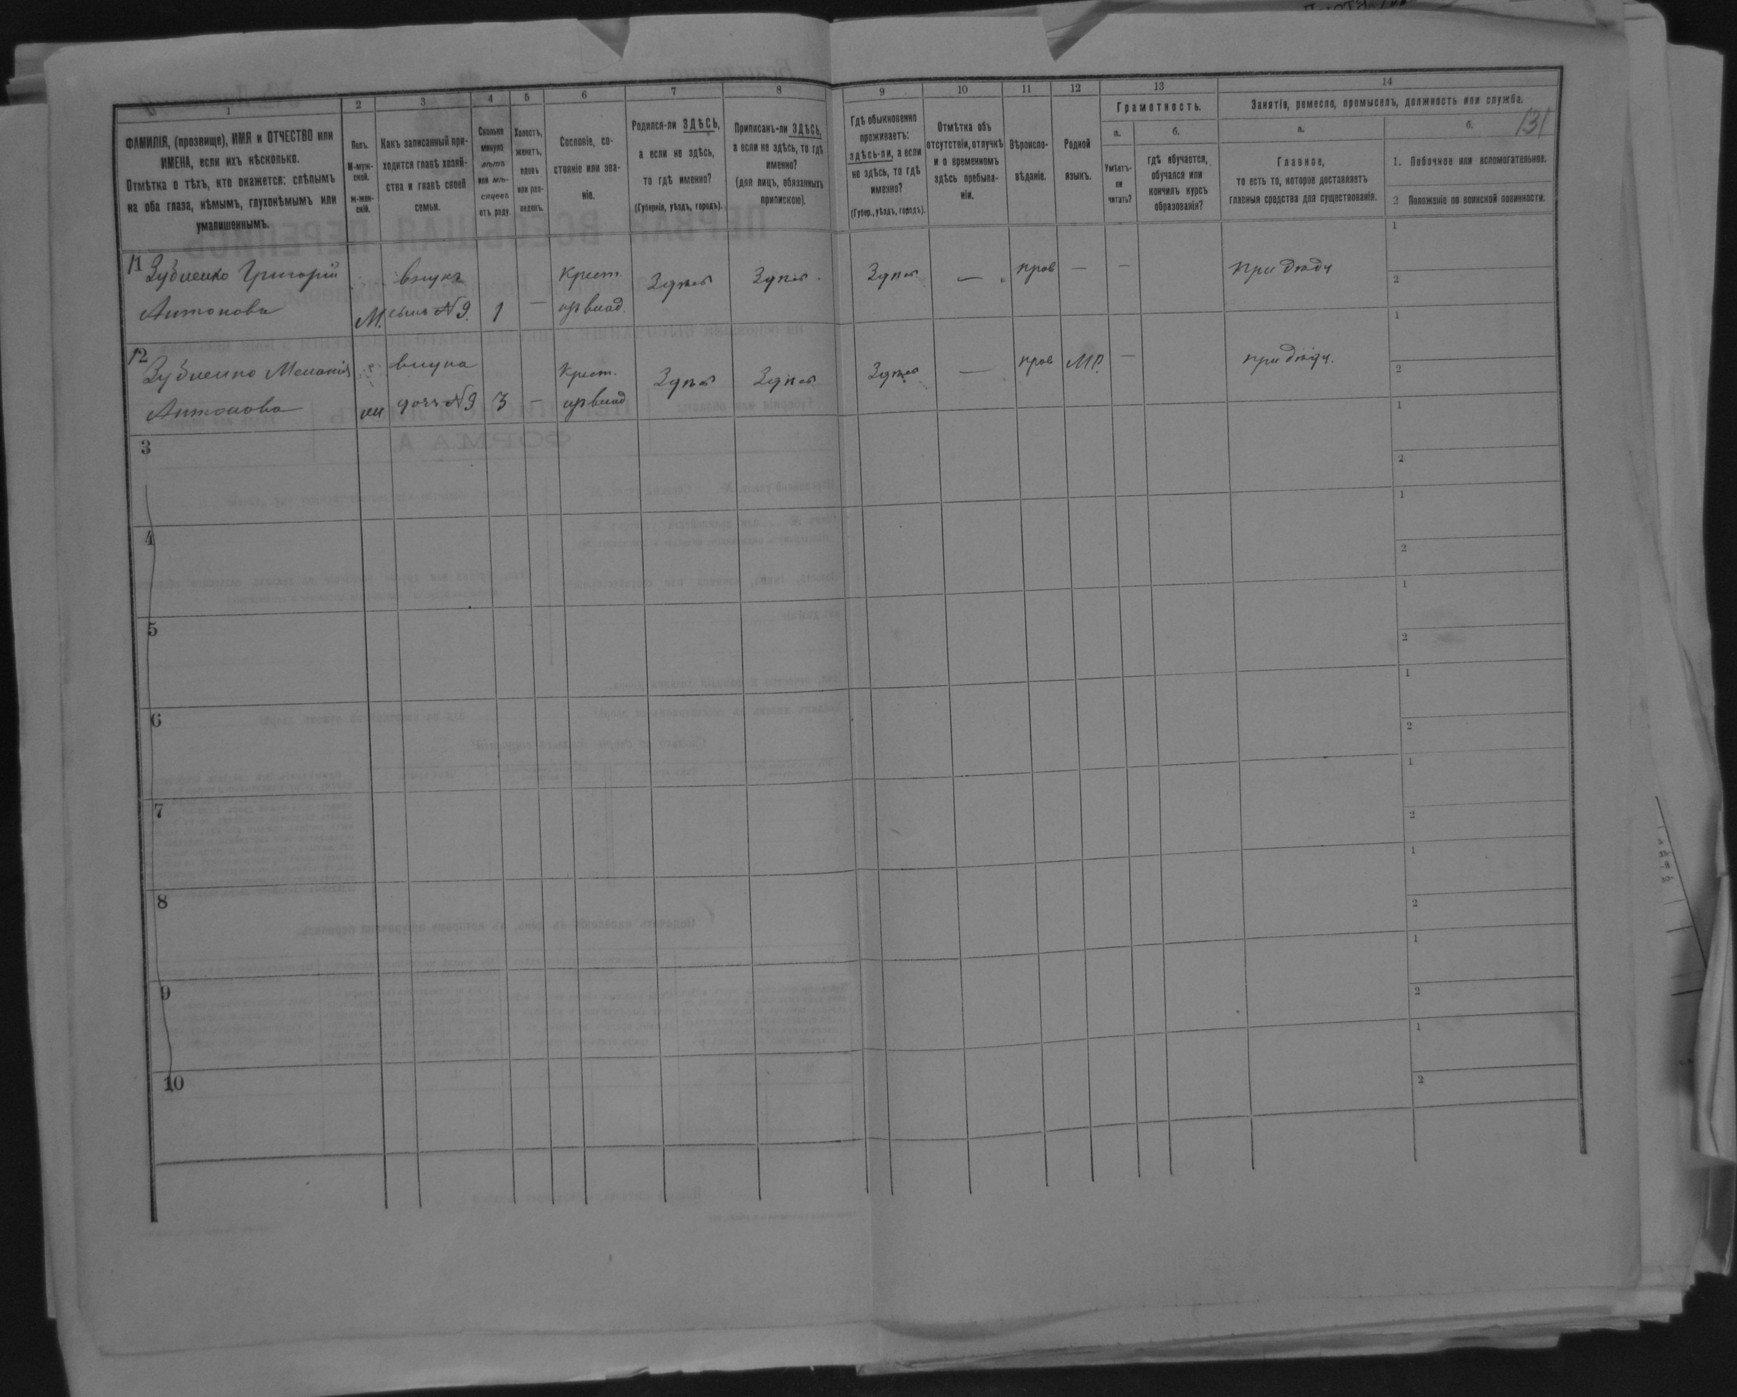 131
1 2 3 4 5 6 7 8 9 10 11 12 13 14
ФАМИЛІЯ, (прозвище), ИМЯ и ОТЧЕСТВО или
ИМЕНА, если ихъ нѣсколько.
Отмѣтка о тѣхъ, кто окажется: слѣпымъ
на оба глаза, нѣмымъ, глухонѣмымъ или
умалишеннымъ.
Полъ.
М-муж-
ской.
Ж-жен-
скій.
Какъ записанный при-
ходится главѣ хозяй-
ства и главѣ своей
семьи.
Сколько
минуло
лѣтъ
или мѣ-
сяцевъ
отъ роду
Холостъ,
женатъ,
вдовъ
или раз-
веденъ.
Сословіе, со-
стояніе или зва-
ніе.
Родился-ли ЗДѢСЬ,
а если не здѣсь,
то гдѣ именно?
(Губернія, уѣздъ, городъ).
Приписанъ-ли ЗДѢСЬ,
а если не здѣсь, то гдѣ
именно?
(для лицъ, обязанныхъ
припискою).
Гдѣ обыкновенно
проживаетъ:
здѣсь-ли, а если
не здѣсь, то гдѣ
именно?
(Губер., уѣздъ, городъ).
Отмѣтка объ
отсутствіи, отлучкѣ
и о временномъ
здѣсь пребыва-
ніи.
Вѣроиспо-
вѣданіе.
Родной
языкъ.
Грамотность.
а.
Умѣетъ-
ли
читать?
б.
гдѣ обучается,
обучался или
кончилъ курсъ
образованія?
Занятія, ремесло, промыселъ, должность или служба.
а.
Главное,
то есть то, которое доставляетъ
главныя средства для существованія.
б.
1. Побочное или вспомогательное.
2 Положеніе по воинской повинности.
11 Зубченко Григорій внукъ Крест. Здѣсь Здѣсь Здѣсь — прав — — при дѣдѣ 1
Антоновъ М. сынъ №9. 1 — 2
12 Зубченко Меланія внука Крест. Здѣсь Здѣсь Здѣсь — прав МР. — при дѣдѣ. 1
Антонова дочь №9 3 — 2
3 1
2
4 1
2
5 1
2
6 1
2
7 1
2
8 1
2
9 1
2
10 1
2